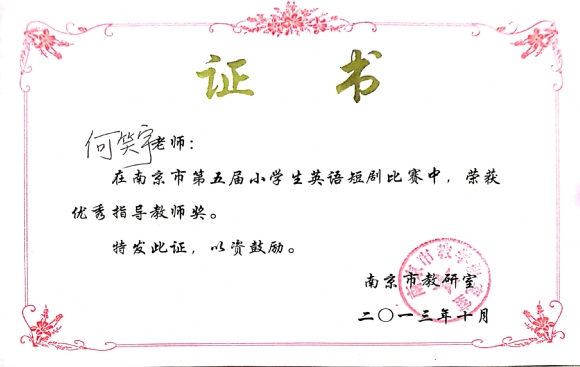 证 书
何笑宇老师：
在南京市第五届小学生英语短剧比赛中，荣获
优秀指导教师奖。
特发此证，以资鼓励。
南京市教研室
二〇一三年十月